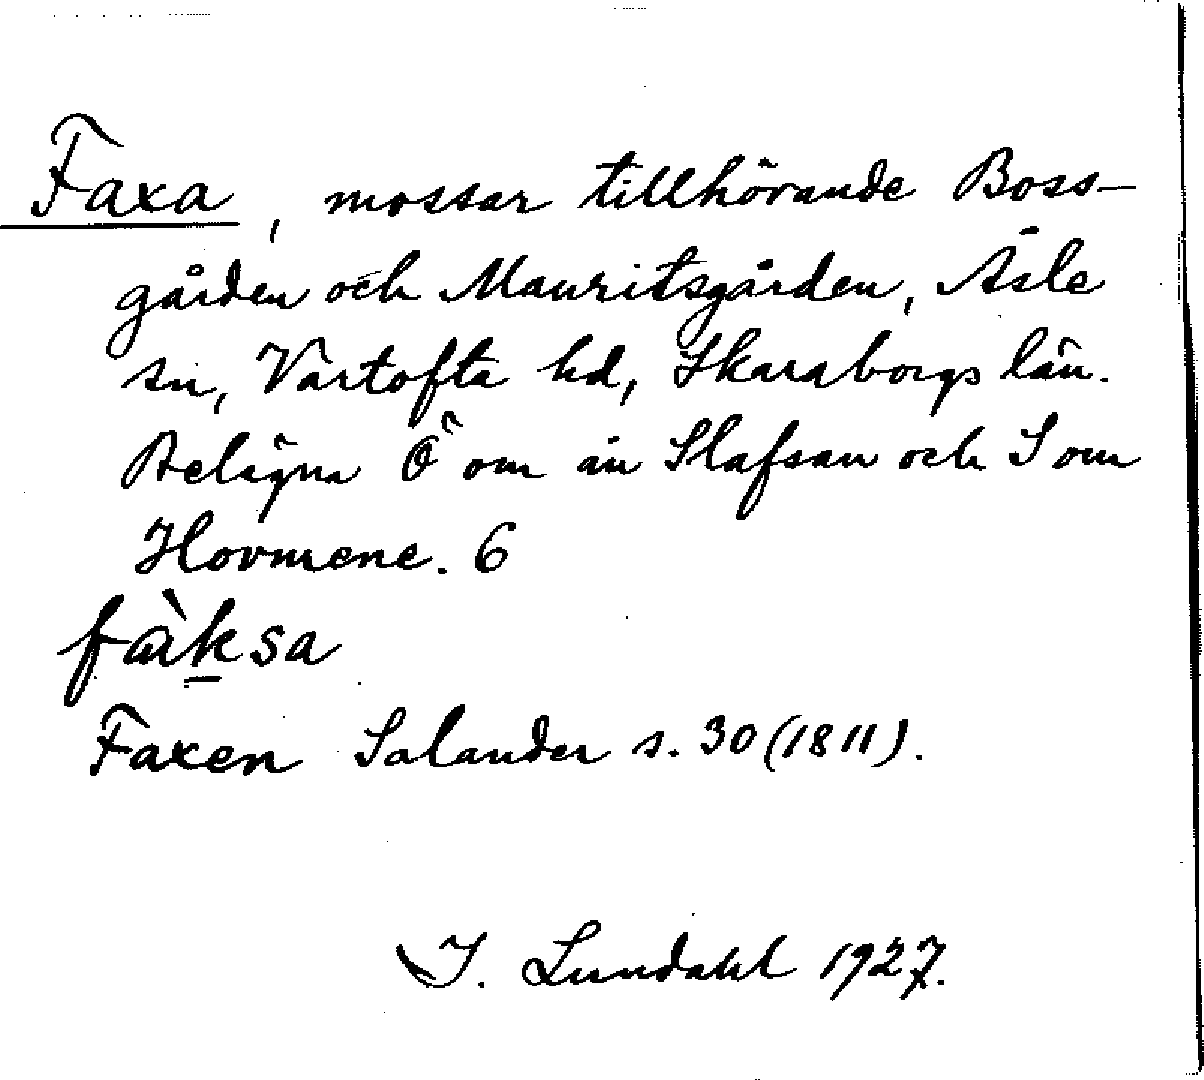 Faxa, mossar tillhörande Boss-
gården och Mauritsgården, Åsle
sn, Vartofta hd, Skaraborgs län.
Belägna Ö om ån Slafsan och S om
Hovmene. 6
fàksa
Faxen Salander s. 30 (1811).
I. Lundahl 1927.